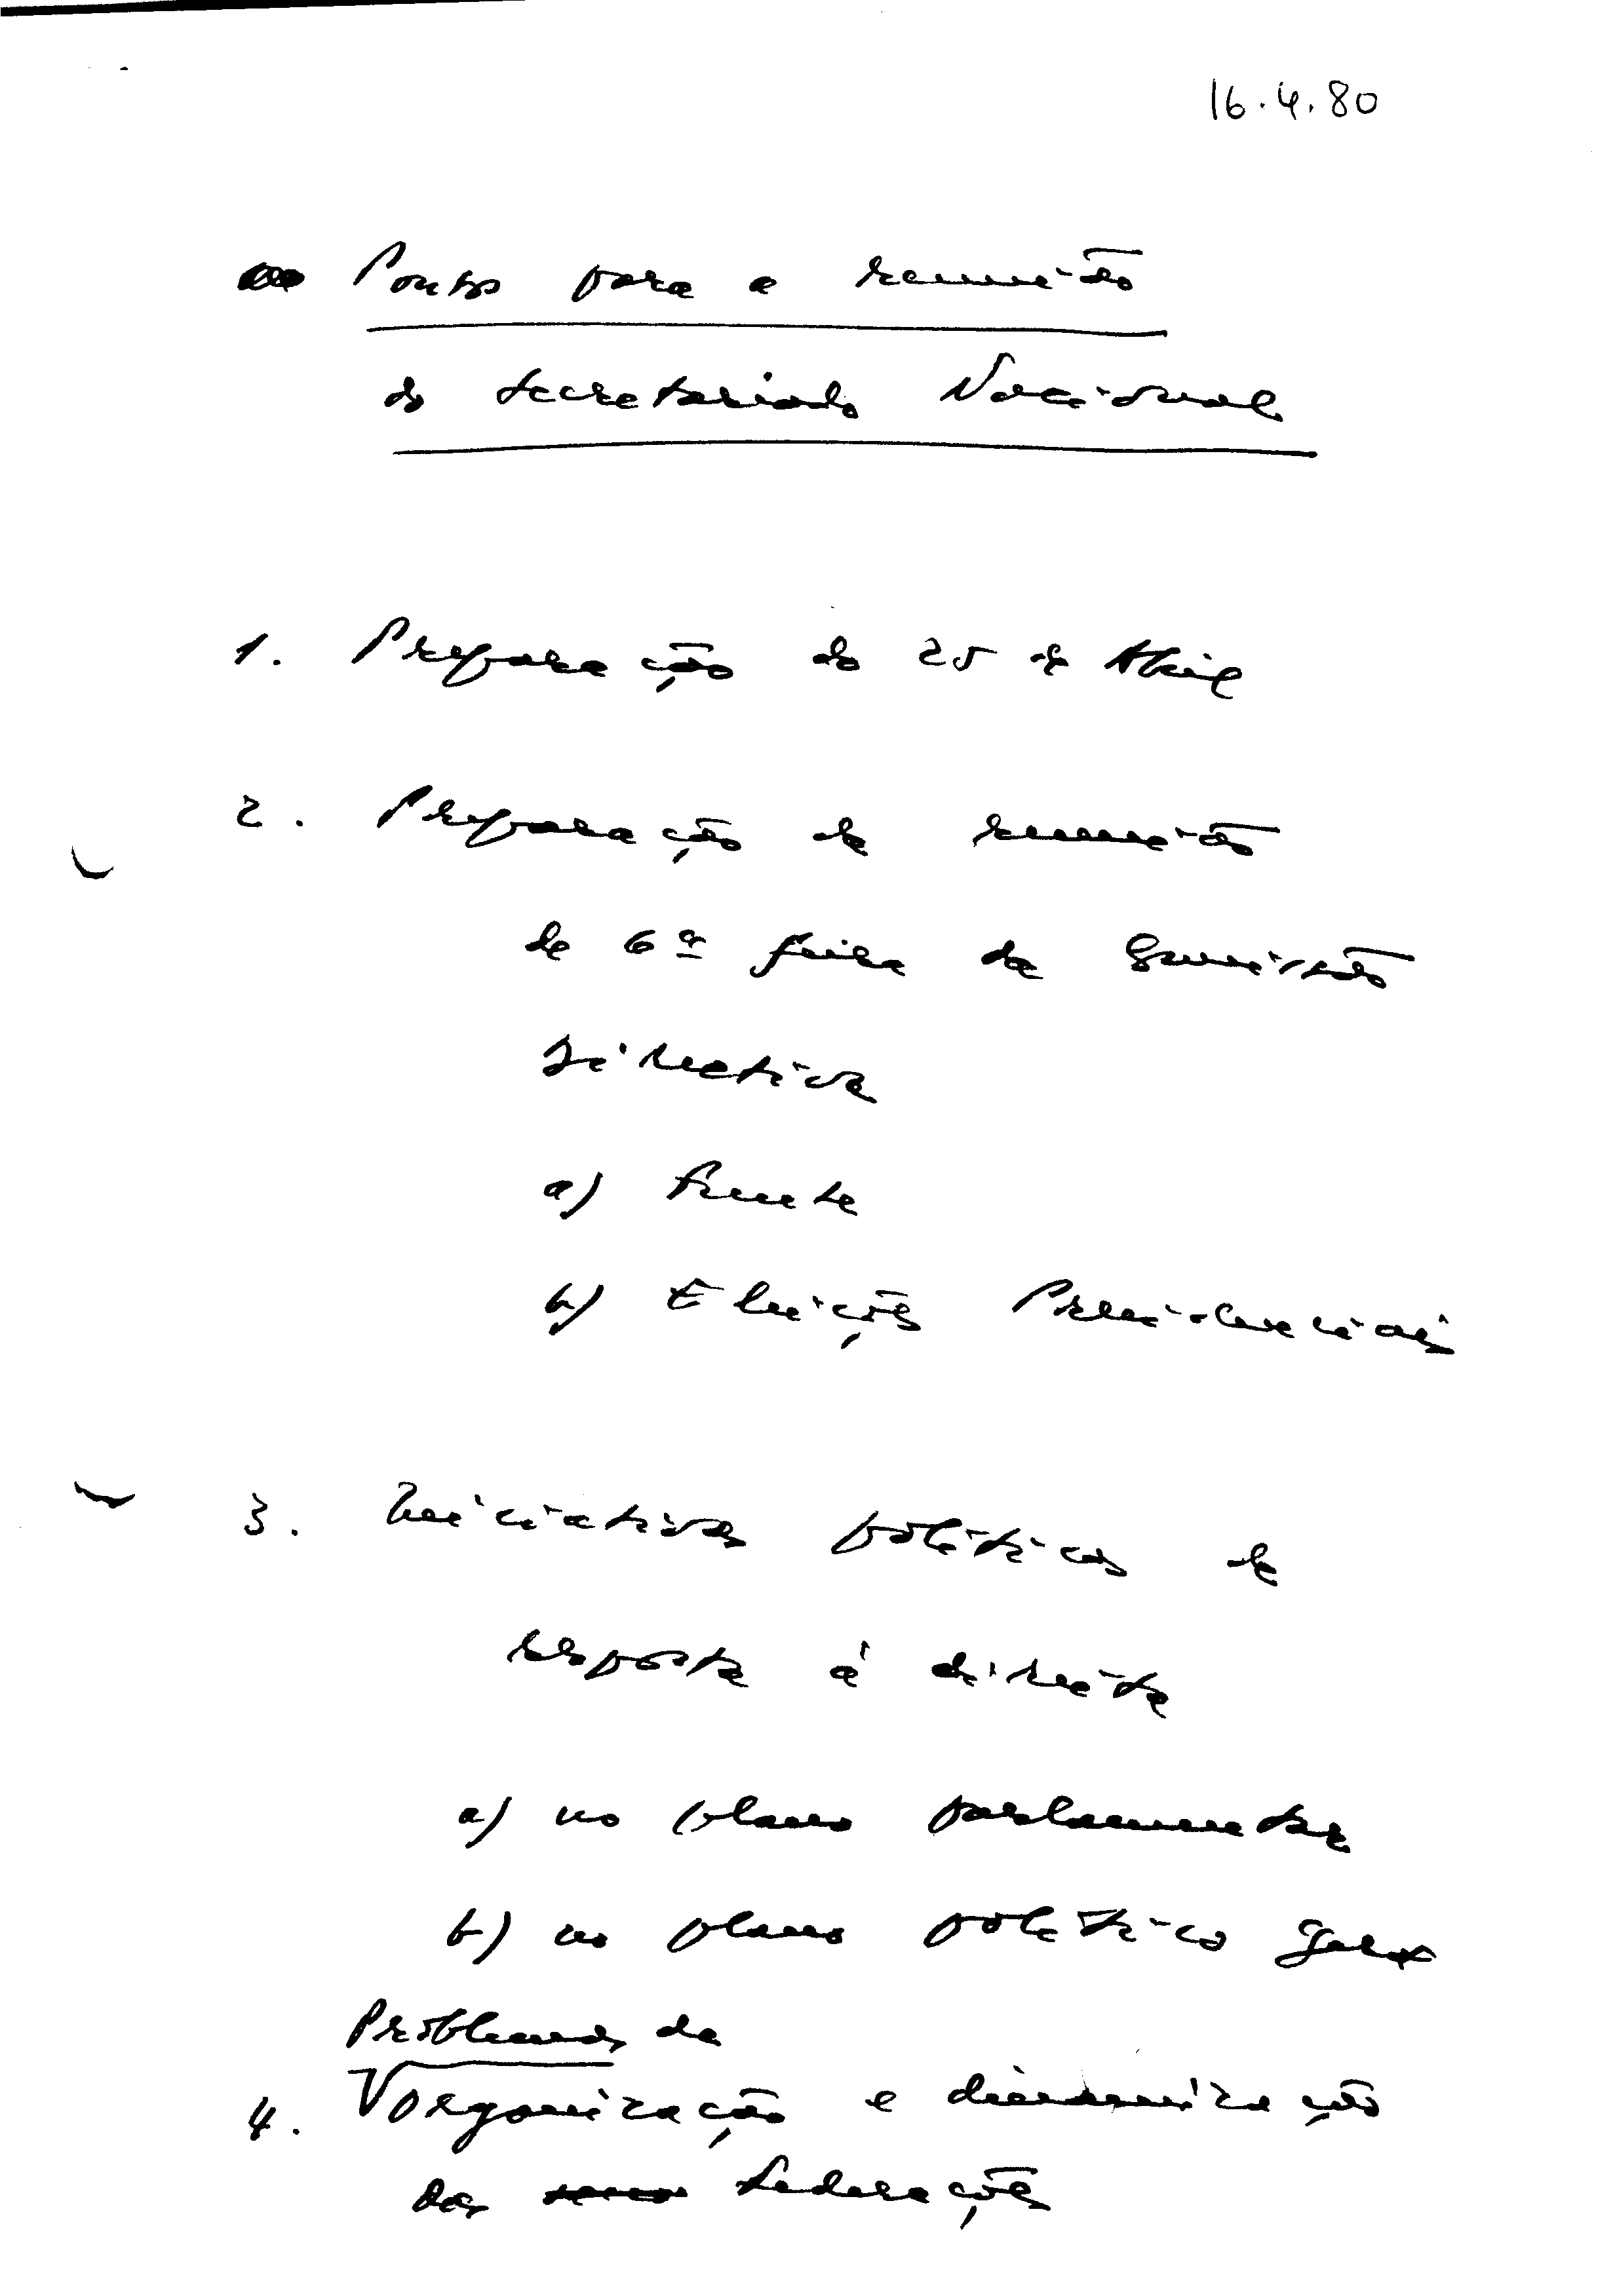 16.4.80
Pontos para a reunião
do Secretariado Nacional
1. Preparação do 25 de Abril
2. Preparação da reunião
de 6ª feira da Comissão
Directiva
a) Frente
b) Eleições Presidenciais
3. Iniciativas políticas de
resposta à direita
a) no plano parlamentar
b) no plano político geral
Problemas de
4. organização e dinamização
das Federações